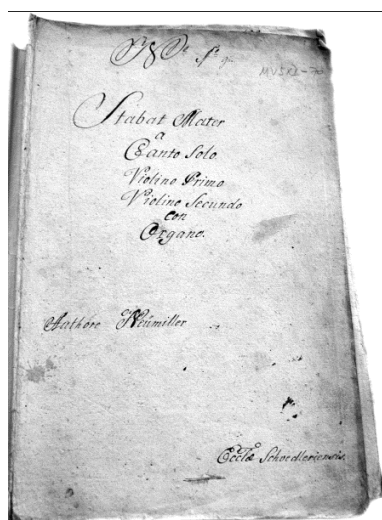 Stabat Mater
a
Canto Solo
Violino Primo
Violino Secundo
con
Organo.
Authore Neümiller
Eccl͞æ Schoedlericensis.